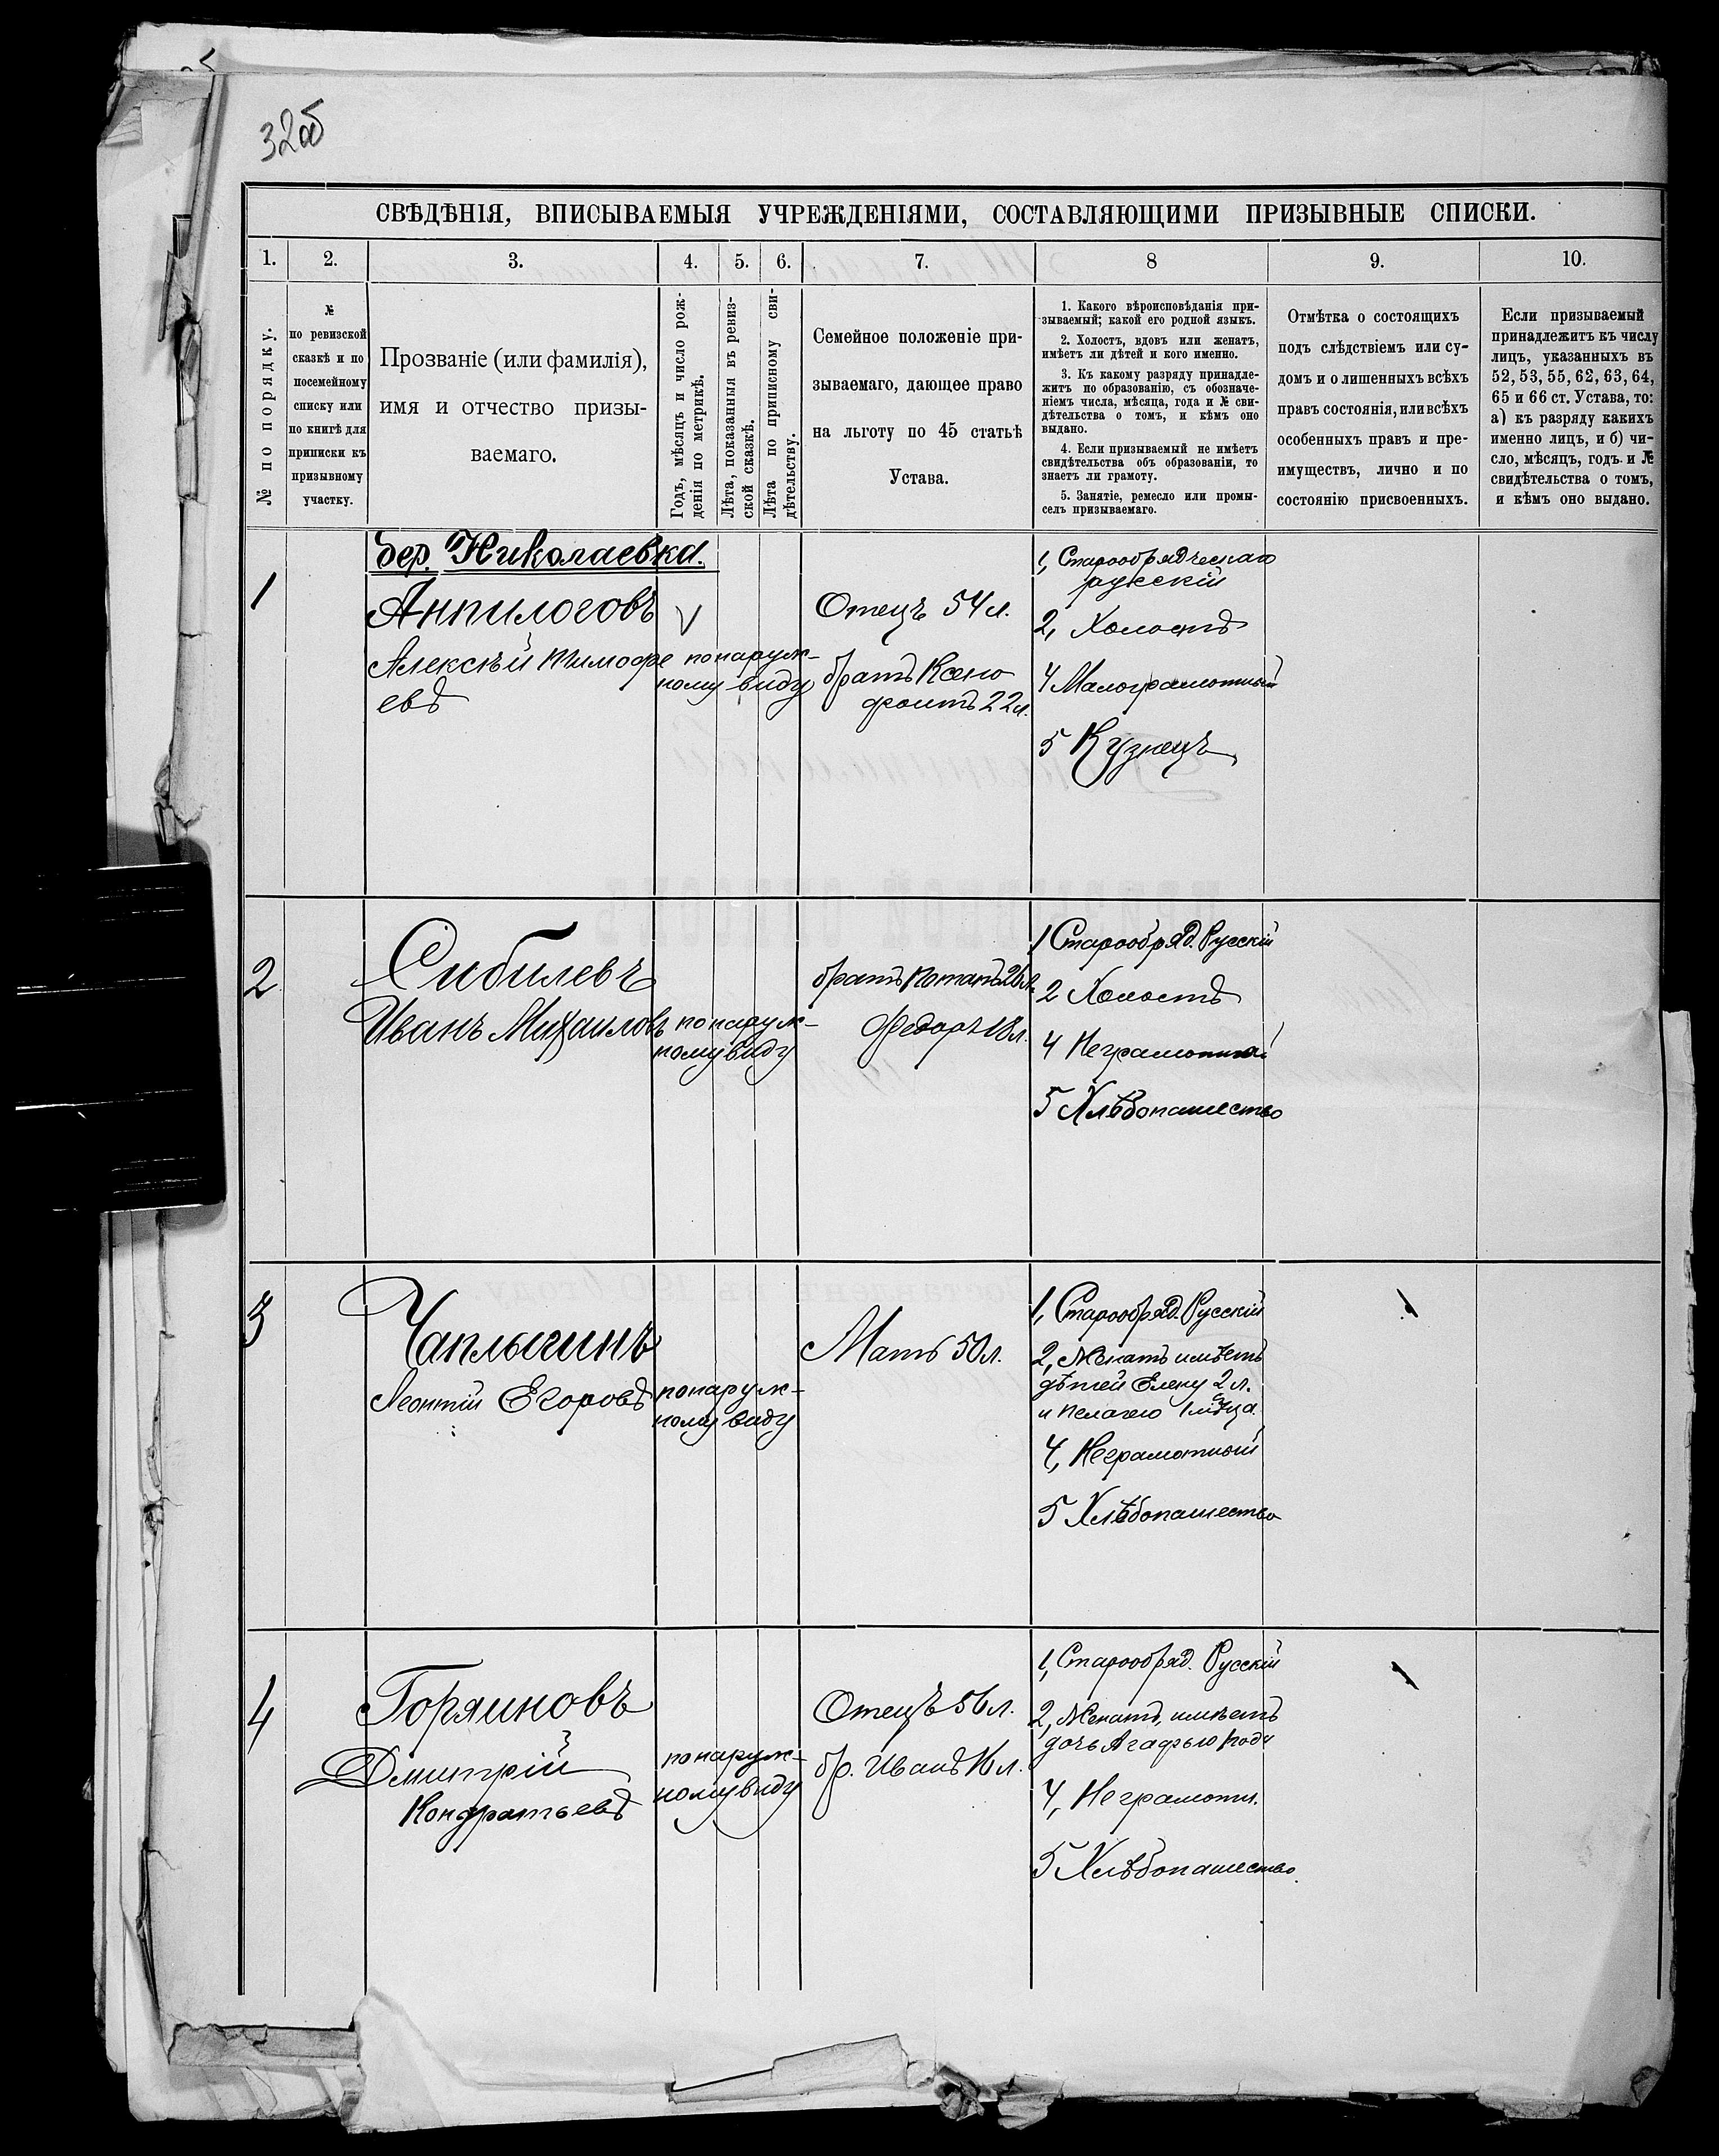 32об
СВѢДѢНІЯ, ВПИСЫВАЕМЫЯ УЧРЕЖДЕНІЯМИ, СОСТАВЛЯЮЩИМИ ПРИЗЫВНЫЕ СПИСКИ.
1. 2. 3. 4. 5. 6. 7. 8 9. 10.
№ по порядку.
№
по ревизской
сказкѣ и по
посемейному
списку или
по книгѣ для
приписки къ
призывному
участку.
Прозваніе (или фамилія),
имя и отчество призы-
ваемаго.
Годъ, мѣсяцъ и число рож-
денія по метрикѣ.
Лѣта, показанныя въ ревиз-
ской сказкѣ.
Лѣта по приписному сви-
дѣтельству.
Семейное положеніе при-
зываемаго, дающее право
на льготу по 45 статьѣ
Устава.
1. Какого вѣроисповѣданія при-
зываемый; какой его родной языкъ.
2. Холостъ, вдовъ или женатъ,
имѣетъ ли дѣтей и кого именно.
3. Къ какому разряду принадле-
житъ по образованію, съ обозначе-
ніемъ числа, мѣсяца, года и № сви-
дѣтельства о томъ, и кѣмъ оно
выдано.
4. Если призываемый не имѣетъ
свидѣтельства объ образованіи, то
знаетъ ли грамоту.
5. Занятіе, ремесло или промы-
селъ призываемаго.
Отмѣтка о состоящихъ
подъ слѣдствіемъ или су-
домъ и о лишенныхъ всѣхъ
правъ состоянія, или всѣхъ
особенныхъ правъ и пре-
имуществъ, лично и по
состоянію присвоенныхъ.
Если призываемый
принадлежитъ къ числу
лицъ, указанныхъ въ
52, 53, 55, 62, 63, 64,
65 и 66 ст. Устава, то:
а) къ разряду какихъ
именно лицъ, и б) чи-
сло, мѣсяцъ, годъ и №
свидѣтельства о томъ,
и кѣмъ оно выдано.
дер. Николаевка.
1
Анпилоговъ
Алексѣй Тимофе
евъ
по наруж-
ному виду
Отецъ 54 л.
братъ Ксено
фонтъ 22 л.
1, Старообрядческаго
русскій
2, Холостъ
4 Малограмотный
5 Кузнецъ
2
Сибилевъ
Иванъ Михаиловъ
по наруж-
ному виду
братъ Потапъ 26 л.
Федоръ 18 л.
1 Старообряд. Русскій
2 Холостъ
4 Неграмотный
5 Хлѣбопашество
3
Чаплыгинъ
Леонтій Егоровъ
по наруж-
ному виду
Мать 50 л.
1, Старообряд. Русскій
2, Женатъ имѣетъ
дѣтей Елену 2 л.
и Пелагею 1 мѣсяца.
4, Неграмотный
5 Хлѣбопашество
4
Горяиновъ
Дмитрій
Кондратьевъ
по наруж-
ному виду
Отецъ 56 л.
бр. Иванъ 16 л.
1, Старообряд. Русскій
2, Женатъ, имѣетъ
дочь Агафью году
4, Неграмотн.
5 Хлѣбопашество.